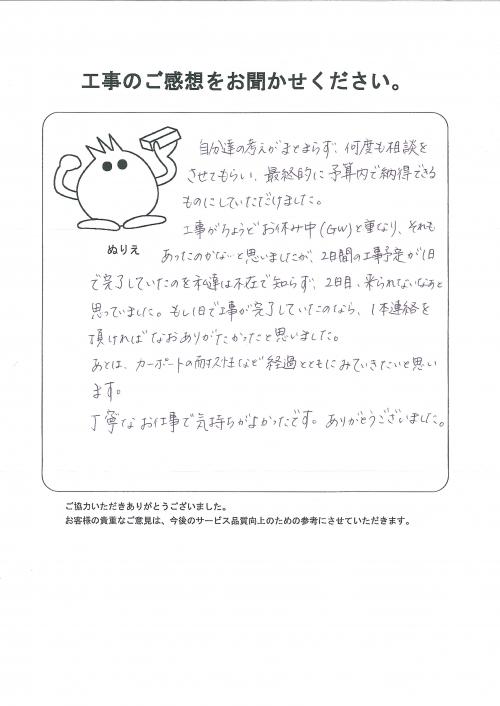 工事のご感想をお聞かせください。
自分達の考えがまとまらず、何度も相談を
させてもらい、最終的に予算内で納得できる
ものにしていただけました。
工事がちょうどお休み中(GW)と重なり、それも
あったのかな…と思いましたが、2日間の工事予定が1日
で完了していたのを私達は不在で知らず、2日目、来られないなぁと
思っていました。もし1日で工事が完了していたのなら、1本連絡を
頂ければなおありがたかったと思いました。
あとは、カーポートの耐久性など経過とともにみていきたいと思い
ます。
丁寧なお仕事で気持ちがよかったです。ありがとうございました。
ぬりえ
ご協力いただきありがとうございました。
お客様の貴重なご意見は、今後のサービス品質向上のための参考にさせていただきます。